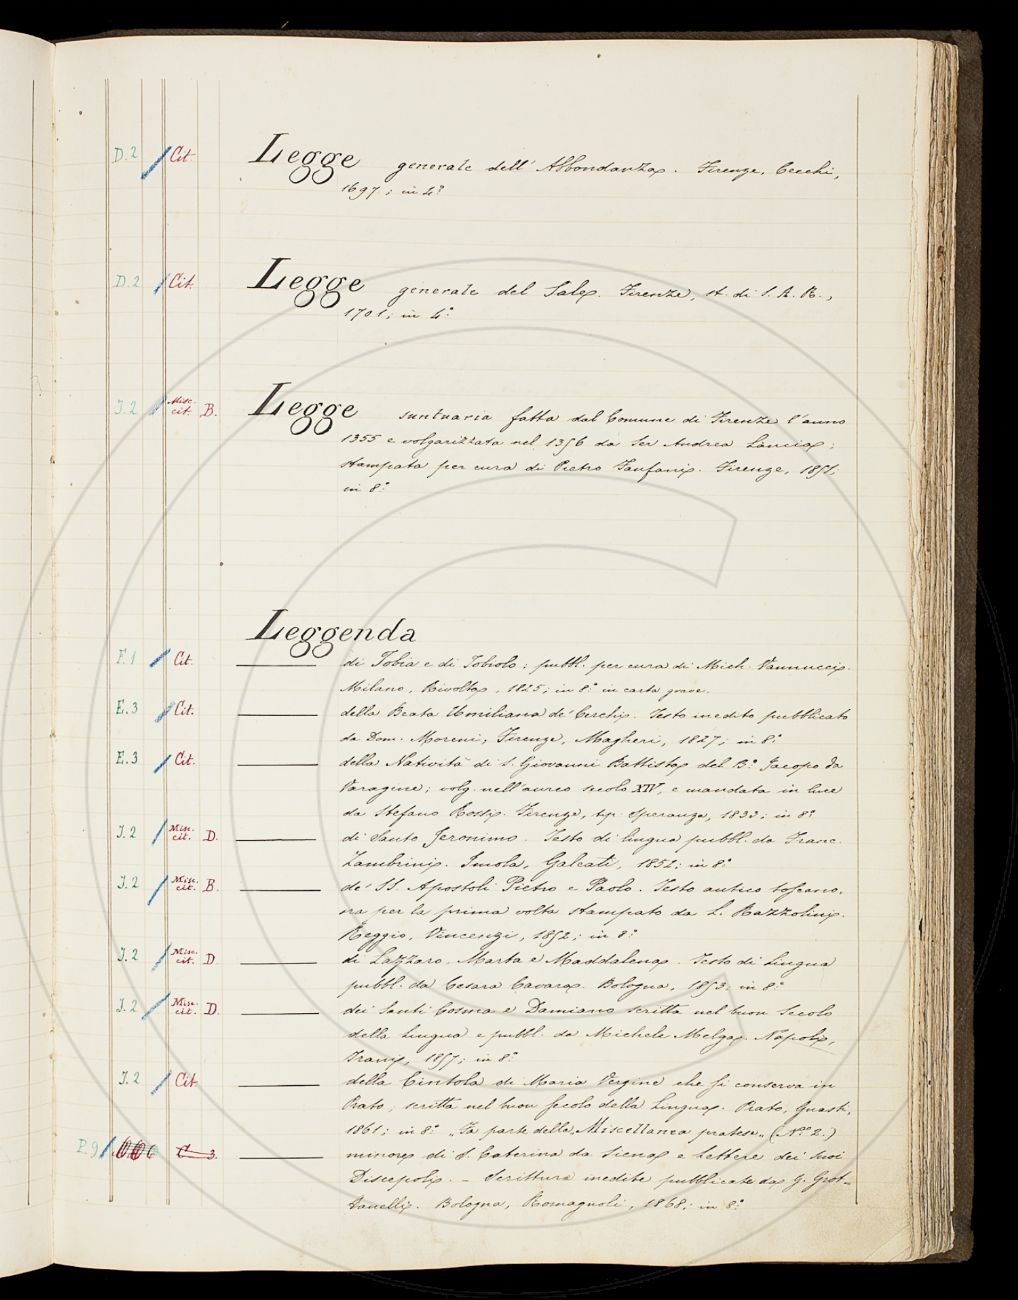 D.2 Cit. Legge generale dell' Abbondanza. Firenze, Cecchi,
1697; in 4.°
D.2 Cit. Legge generale del Sale. Firenze, st. di S. A. R.,
1701; in 4.°
I.2 Misc. cit. B. Legge suntuaria fatta dal Comune di Firenze l'anno
1355 e volgarizzata nel 1356 da Ser Andrea Lancia;
stampata per cura di Pietro Fanfani. Firenze, 1851,
in 8.°
Leggenda
F.1 Cit. di Tobia e di Tobiolo; pubbl. per cura di Mich. Vannucci.
Milano, Rivolta, 1825; in 8.° in carta grave.
E.3 Cit. della Beata Umiliana de' Cerchi. Testo inedito pubblicato
da Dom. Moreni; Firenze, Magheri, 1827; in 8.°
E.3 Cit. della Natività di S. Giovanni Battista del B.° Jacopo da
Varagine; volg. nell'aureo secolo XIV, e mandata in luce
da Stefano Rossi. Firenze, tip. Speranza, 1833; in 8.°
I.2 Misc. cit. D. di Santo Jeronimo. Testo di lingua pubbl. da Franc.
Zambrini. Imola, Galeati, 1852; in 8.°
I.2 Misc. cit. B. de' SS. Apostoli Pietro e Paolo. Testo antico toscano,
ora per la prima volta stampato da L. Razzolini.
Reggio, Vincenzi, 1852; in 8.°
I.2 Misc. cit. D di Lazzaro, Marta e Maddalena. Testo di Lingua
pubbl. da Cesare Cavara. Bologna, 1853; in 8.°
I.2 Misc. cit. D. dei Santi Cosma e Damiano scritta nel buon Secolo
della Lingua e pubbl. da Michele Melga. Napoli,
Trani, 1857; in 8.°
I.2 Cit della Cintola di Maria Vergine che si conserva in
Prato, scritta nel buon secolo della Lingua. Prato, Guasti,
1861; in 8.° „Fa parte della „Miscellanea pratese„ (N.° 2.)
P.9 C 3. minore di S. Caterina da Siena e Lettere dei suoi
Discepoli. – Scritture inedite pubblicate da G. Grot-
tanelli. Bologna, Romagnoli, 1868; in 8.°